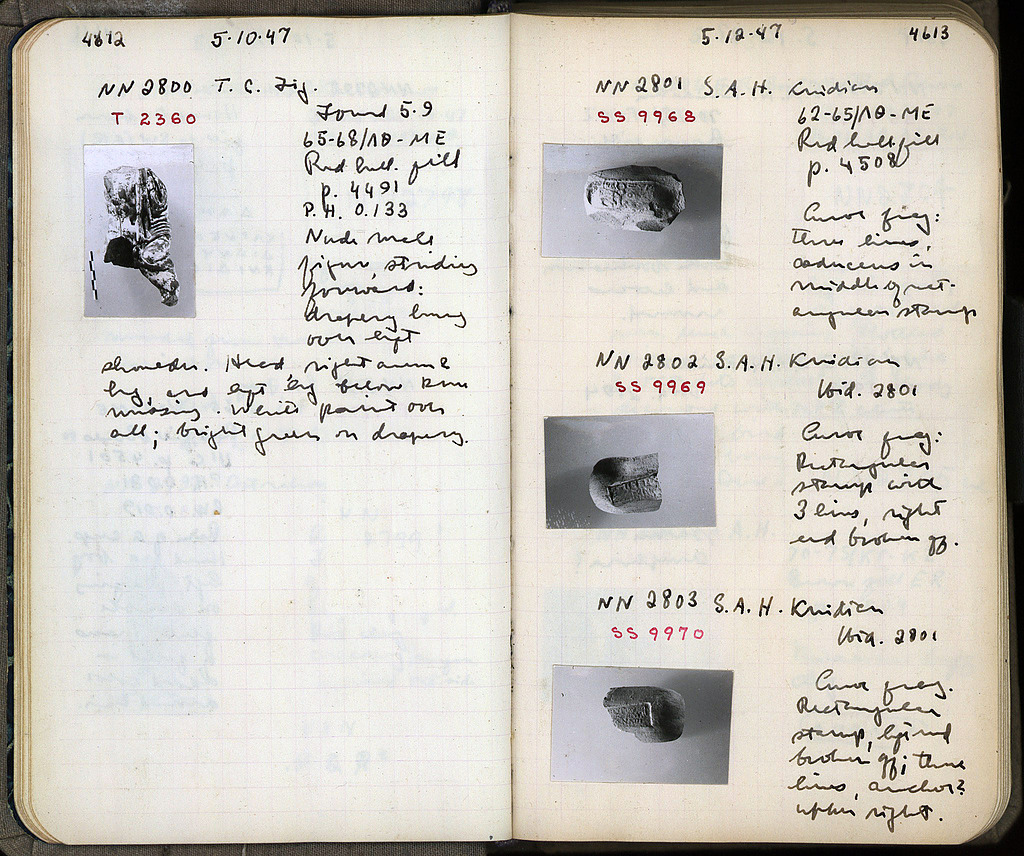 4612 5·10·47
NN 2800 T. C. Fig.
T 2360
Found 5.9
65-68/ΛΘ-ME
Red buil. fill
p. 4491
P.H. 0.133
Nude male
figure, striding
forward:
drapery hung
over left
shoulder. Head, right arm &
leg, and left leg below knee
missing. White paint over
all; bright green on drapery.
5·12·47 4613
NN 2801 S.A.H. Knidian
SS 9968
62-65/ΛΘ-ME
Red buil. fill
p. 4508
Curve frag:
three lines,
caduceus in
middle of rect-
angular stamp
NN 2802 S.A.H. Knidian
SS 9969
Ibid. 2801
Curve frag:
Rectangular
stamp with
3 lines, right
end broken off.
NN 2803 S.A.H. Knidian
SS 9970
Ibid. 2801
Curve frag.
Rectangular
stamp, left end
broken off; three
lines, anchor?
upper right.